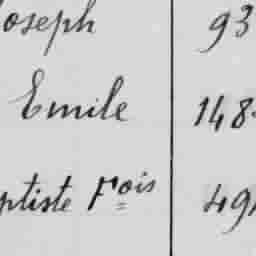 Joseph 93
Emile 148
ptiste Fois 49